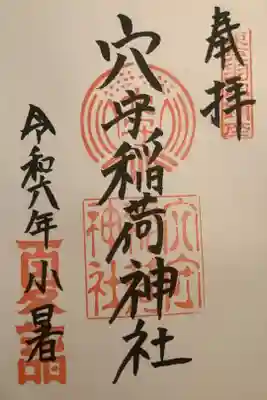 奉拝
穴守稲荷神社
穴守
稲荷
神社
令和六年小暑